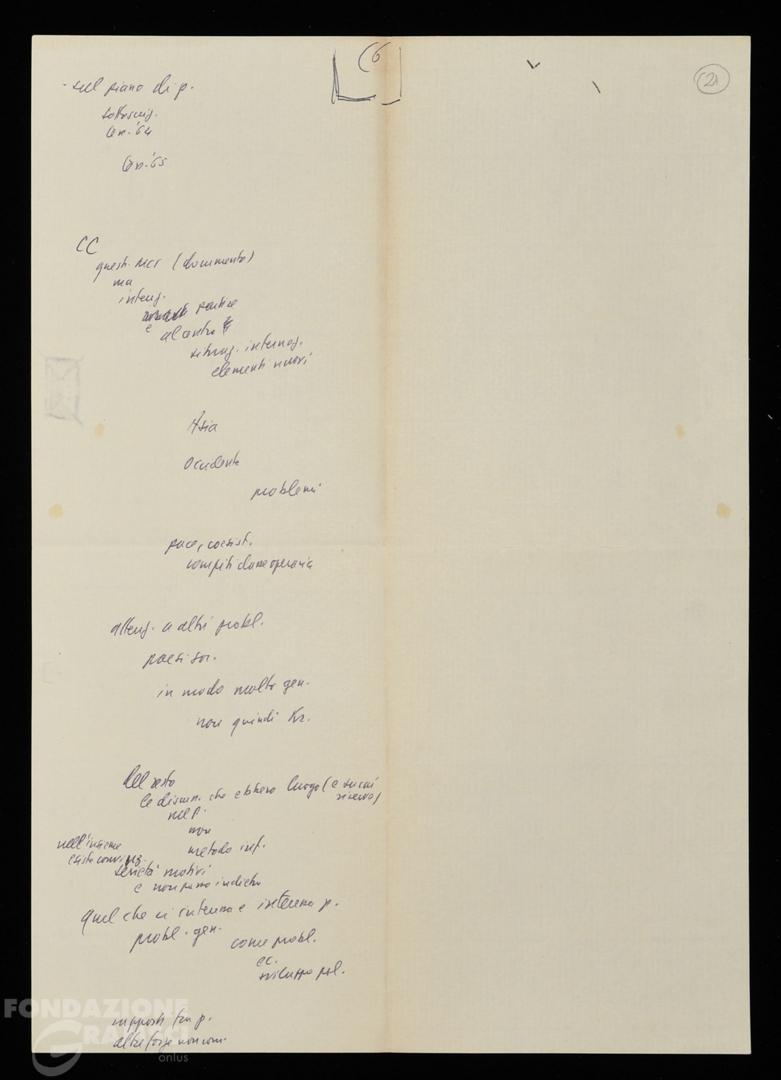 6
21
- sul piano di p.
sottoscriz.
Con. '64
Con. '65
CC
quest. MCI (documento)
ma
intenz.
sentire
e al centro
situaz. internaz.
elementi nuovi
Asia
Occidente
problemi
pace, coesist.
compiti classe operaia
attenz. a altri probl.
paesi soc.
in modo molto gen.
non quindi Kr.
Del resto
le discuss. che ebbero luogo (e su cui
nel P.
non
nell'insieme
metodo inf.
esiste convinz.
serietà motivi
e non passo indietro
Quel che ci interessa e interessa p.
probl. gen.
come probl.
CC.
sviluppo pol.
rapporti tra p.
altre forze non com.
FONDAZIONE
GRAMSCI
onlus